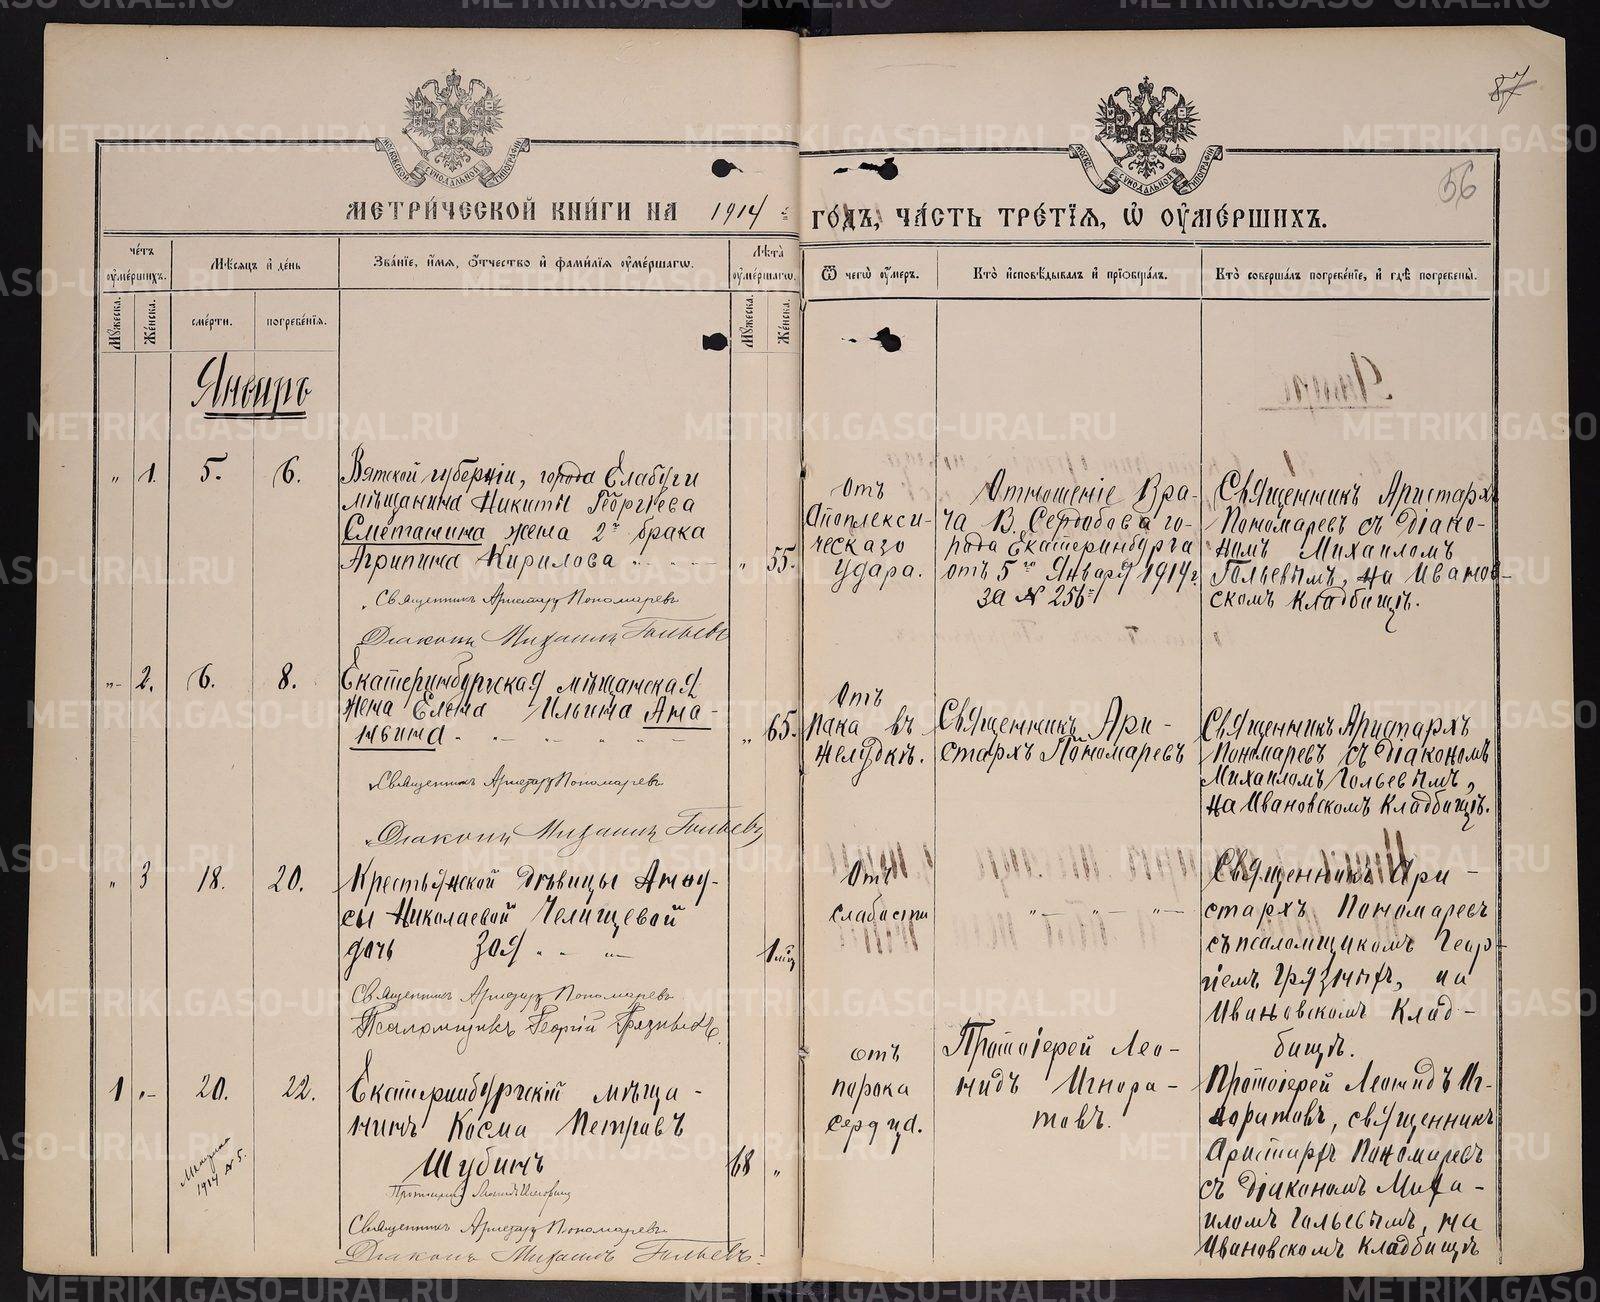 87
56
МОСКОВСКОЙ СѴНОДАЛЬНОЙ ТИПОГРАФІИ
МЕТРИ́ЧЕСКОЙ КНИ́ГИ НА 1914
ГО́ДЪ, ЧА́СТЬ ТРЕ́ТІЯ, Ѡ ОУМЕ́РШИХЪ.
Че́тъ оуме́ршихъ.
Мѣ́сяцъ и де́нь
Зва́нїе, и́мя, ѻ́тчество и фами́лїя оуме́ршагѡ.
Лѣ́та оуме́ршагѡ.
Ѿ чегѡ̀ оу́меръ.
Кто̀ исповѣ́дывалъ и прїобща́лъ.
Кто̀ соверша́лъ погребе́нїе, и гдѣ̀ погребены̀.
Мꙋ́жеска.
Же́нска.
сме́рти.
погребе́нїя.
Мꙋ́жеска.
Же́нска.
Январь
„ 1. 5. 6.
Вятской губерніи, города Елабуги
мѣщанина Никиты Георгіева
Сметанина жена 2го брака
Агрипина Кирилова „ 55.
Священникъ Аристархъ Пономаревъ
Діаконъ Михаилъ Гольевъ
Отъ
Апоплекси-
ческаго
удара.
Отношеніе Вра-
ча В. Сердобова го-
рода Екатеринбурга
отъ 5го Января 1914 г.
за № 256
Священникъ Аристархъ
Пономаревъ съ Діако-
номъ Михаиломъ
Гольевымъ, на Иванов-
скомъ кладбищѣ.
„ 2. 6. 8.
Екатеринбургская мѣщанская
жена Елена Ильина Ана-
ньина „ 65.
Священникъ Аристархъ Пономаревъ
Діаконъ Михаилъ Гольевъ
Отъ
рака въ
желудкѣ.
Священникъ Ари-
стархъ Пономаревъ
Священникъ Аристархъ
Пономаревъ съ Діакономъ
Михаиломъ Гольевымъ,
на Ивановскомъ кладбищѣ.
„ 3 18. 20.
Крестьянской дѣвицы Анну-
сы Николаевой Челищевой
дочь Зоя 1 мѣс
Священникъ Аристархъ Пономаревъ
Псаломщикъ Георгій Грязныхъ.
Отъ
слабости
„ „ „
Священникъ Ари-
стархъ Пономаревъ
съ псаломщикомъ Геор-
гіемъ Грязныхъ, на
Ивановскомъ Клад-
бищѣ.
1 „ 20. 22.
Екатеринбургскій мѣща-
нинъ Косма Петровъ
Шубинъ 68 „
1914 № 5.
Протоіерей Леонидъ Игноратовъ
Священникъ Аристархъ Пономаревъ
Діаконъ Михаилъ Гольевъ.
отъ
порока
сердца.
Протоіерей Лео-
нидъ Игнора-
товъ.
Протоіерей Леонидъ Иг-
норатовъ, священникъ
Аристархъ Пономаревъ
съ діакономъ Миха-
иломъ Гольевымъ, на
Ивановскомъ кладбищѣ
METRIKI.GASO-URAL.RU